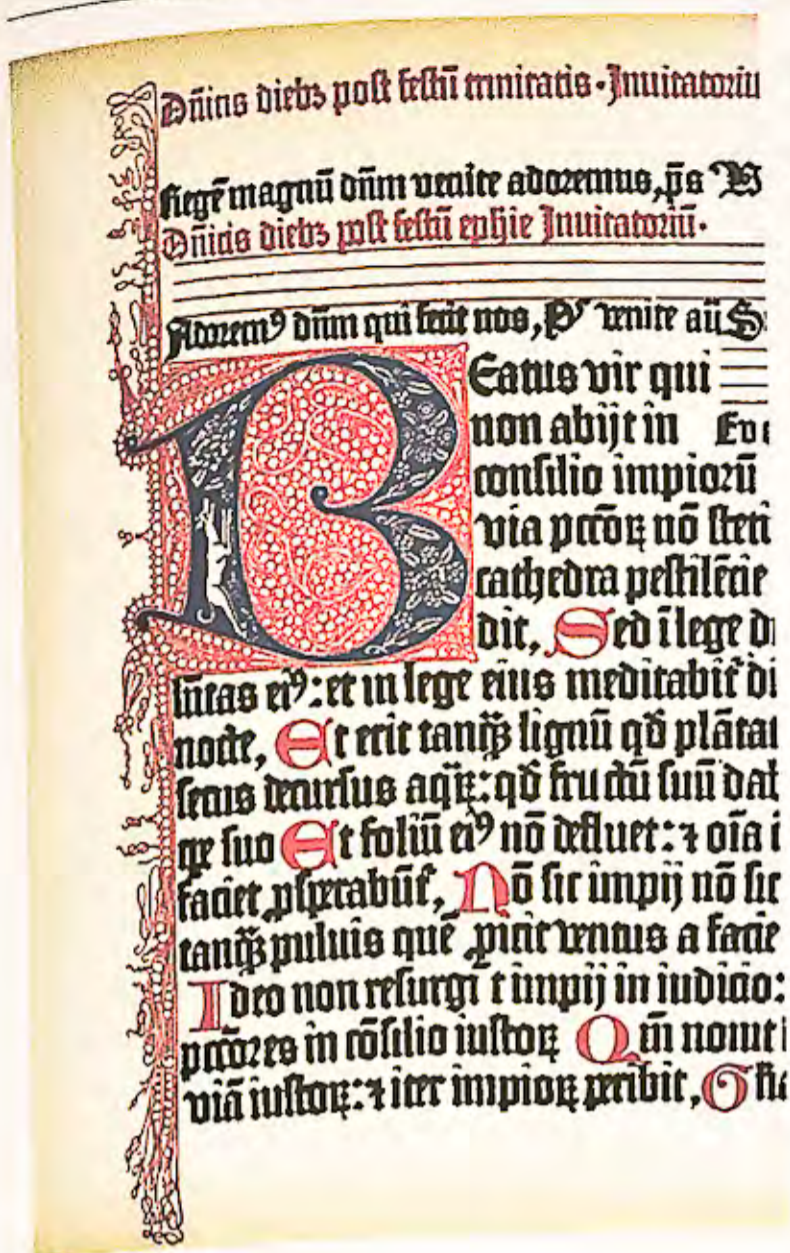 Dñicis diebꝫ post festū trinitatis · Inuitatoriū
Regē magnū dñm venite adoremus, p̄s
Dñicis diebꝫ post festū ephie Inuitatoriū ·
Adoremꝰ dñm qui fecit nos, venite aū S
Beatus vir qui
non abijt in Evo
consilio impiorū
via pccōꝝ nō steti
cathedra pestilētie
dit, Sed ī lege d
lūtas eiꝰ: et in lege eius meditabit᷑ di
nocte, Et erit tanqꝫ lignū qd̄ plātat
secus decursus aqꝝ: qd̄ fructū suū dab
tꝑe suo Et foliū eiꝰ nō defluet: ⁊ oīa
faciet ꝓsꝑabūt᷑, Nō sic impij nō sic
tanqꝫ puluis quē ꝓicit ventus a facie
Ideo non resurgūt impij in iudicio:
pccōres in cōsilio iustoꝝ Qm̄ nouit
viā iustoꝝ: ⁊ iter impioꝝ peribit, G